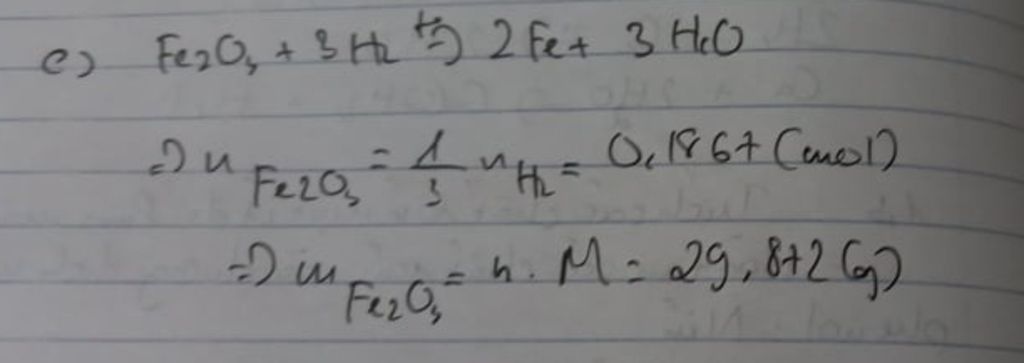 c) Fe₂O₃ + 3H₂ t°→ 2Fe + 3H₂O
=> n Fe₂O₃ = 1/3 n H₂ = 0,1867 (mol)
=> m Fe₂O₃ = n . M = 29,872 (g)